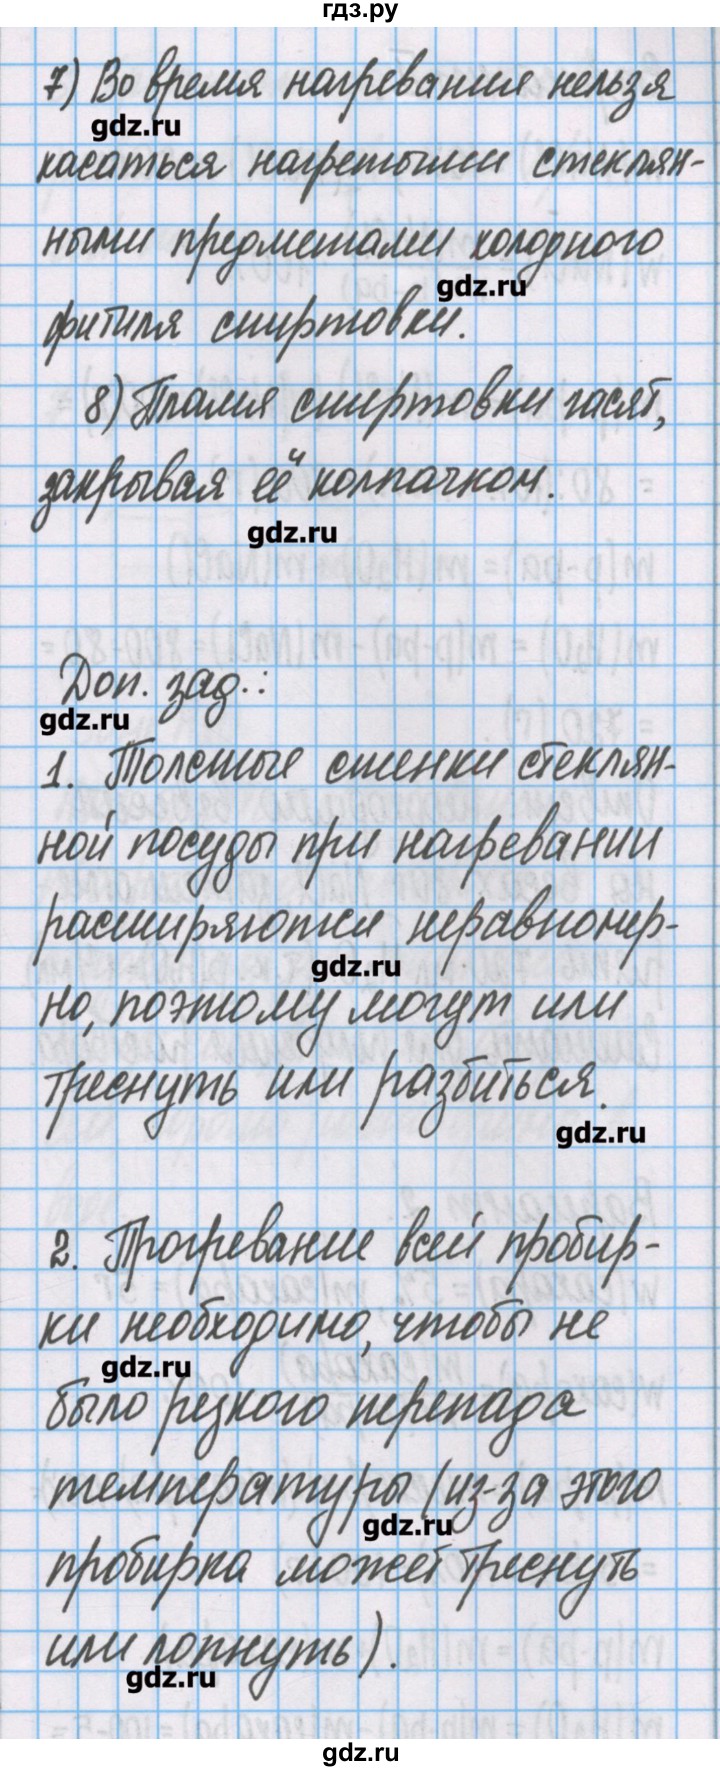 гдз.ру
7) Во время нагревания нельзя
gdz.ru
касаться нагретыми стеклян-
ными предметами холодного
gdz.ru
фитиля спиртовки.
8) Пламя спиртовки гасят,
закрывая её колпачком.
gdz.ru
Доп. зад.:
gdz.ru
1. Толстые стенки стеклян-
ной посуды при нагревании
расширяются неравномер-
gdz.ru
но, поэтому могут или
треснуть или разбиться.
gdz.ru
2. Прогревание всей пробир-
ки необходимо, чтобы не
gdz.ru
было резкого перепада
температуры (из-за этого
gdz.ru
пробирка может треснуть
или лопнуть).
gdz.ru
gdz.ru